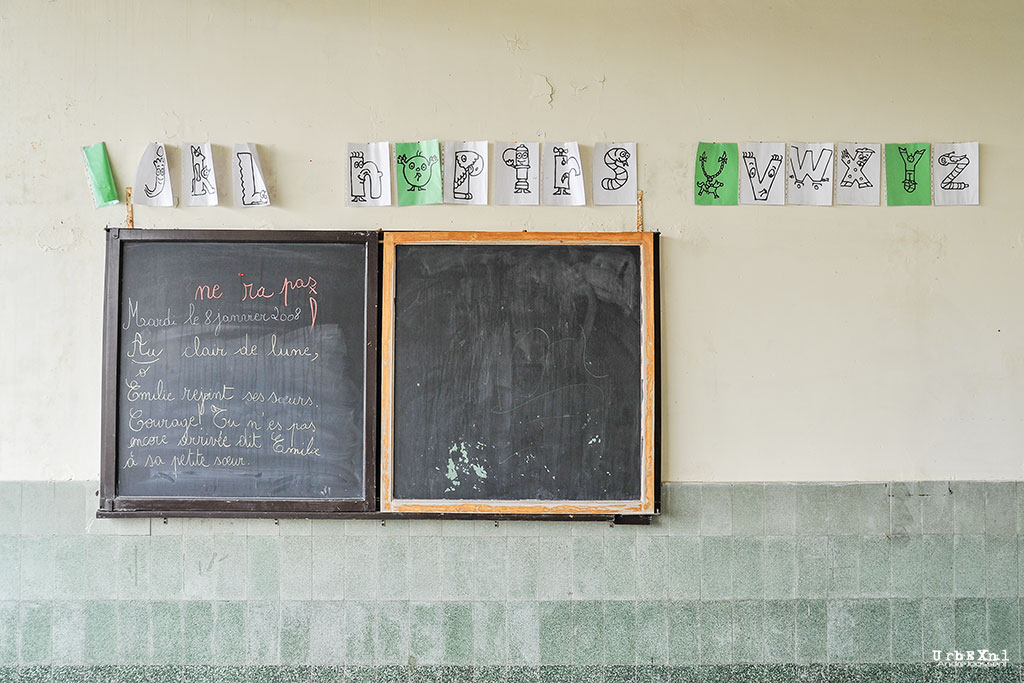 J K L N O P Q R S U V W X Y Z
ne ira pas !
Mardi le 8 janvier 2008
Au clair de lune,
Emilie rejoint ses sœurs.
Courage! Tu n'es pas
encore arrivée dit Emilie
à sa petite sœur.
UrbEXnl